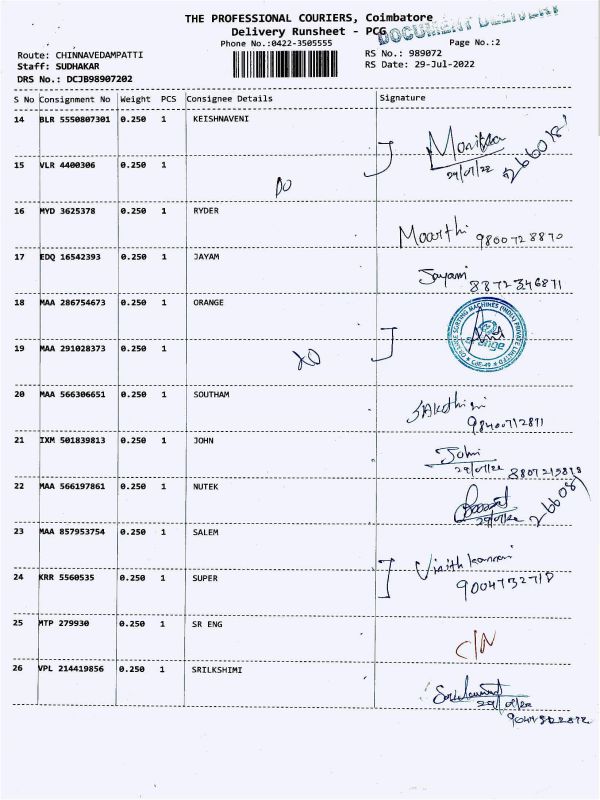 THE PROFESSIONAL COURIERS, Coimbatore
Delivery Runsheet - PCG
DOCUMENT DELIVERY
Phone No.:0422-3505555
Page No.:2
Route: CHINNAVEDAMPATTI
RS No.: 989072
Staff: SUDHAKAR
RS Date: 29-Jul-2022
DRS No.: DCJB98907202
S No Consignment No Weight PCS Consignee Details Signature
14 BLR 5550807301 0.250 1 KEISHNAVENI
29/07/22
15 VLR 4400306 0.250 1
DO
16 MYD 3625378 0.250 1 RYDER
Moorthi 9800728870
17 EDQ 16542393 0.250 1 JAYAM
Jayam 8872346871
18 MAA 286754673 0.250 1 ORANGE
19 MAA 291028373 0.250 1
DO
20 MAA 566306651 0.250 1 SOUTHAM
98400712871
21 IXM 501839813 0.250 1 JOHN
John
29/07/22
22 MAA 566197861 0.250 1 NUTEK
29/07/22
23 MAA 857953754 0.250 1 SALEM
24 KRR 5560535 0.250 1 SUPER
9004732710
25 MTP 279930 0.250 1 SR ENG
C/N
26 VPL 214419856 0.250 1 SRILKSHIMI
29/07/22